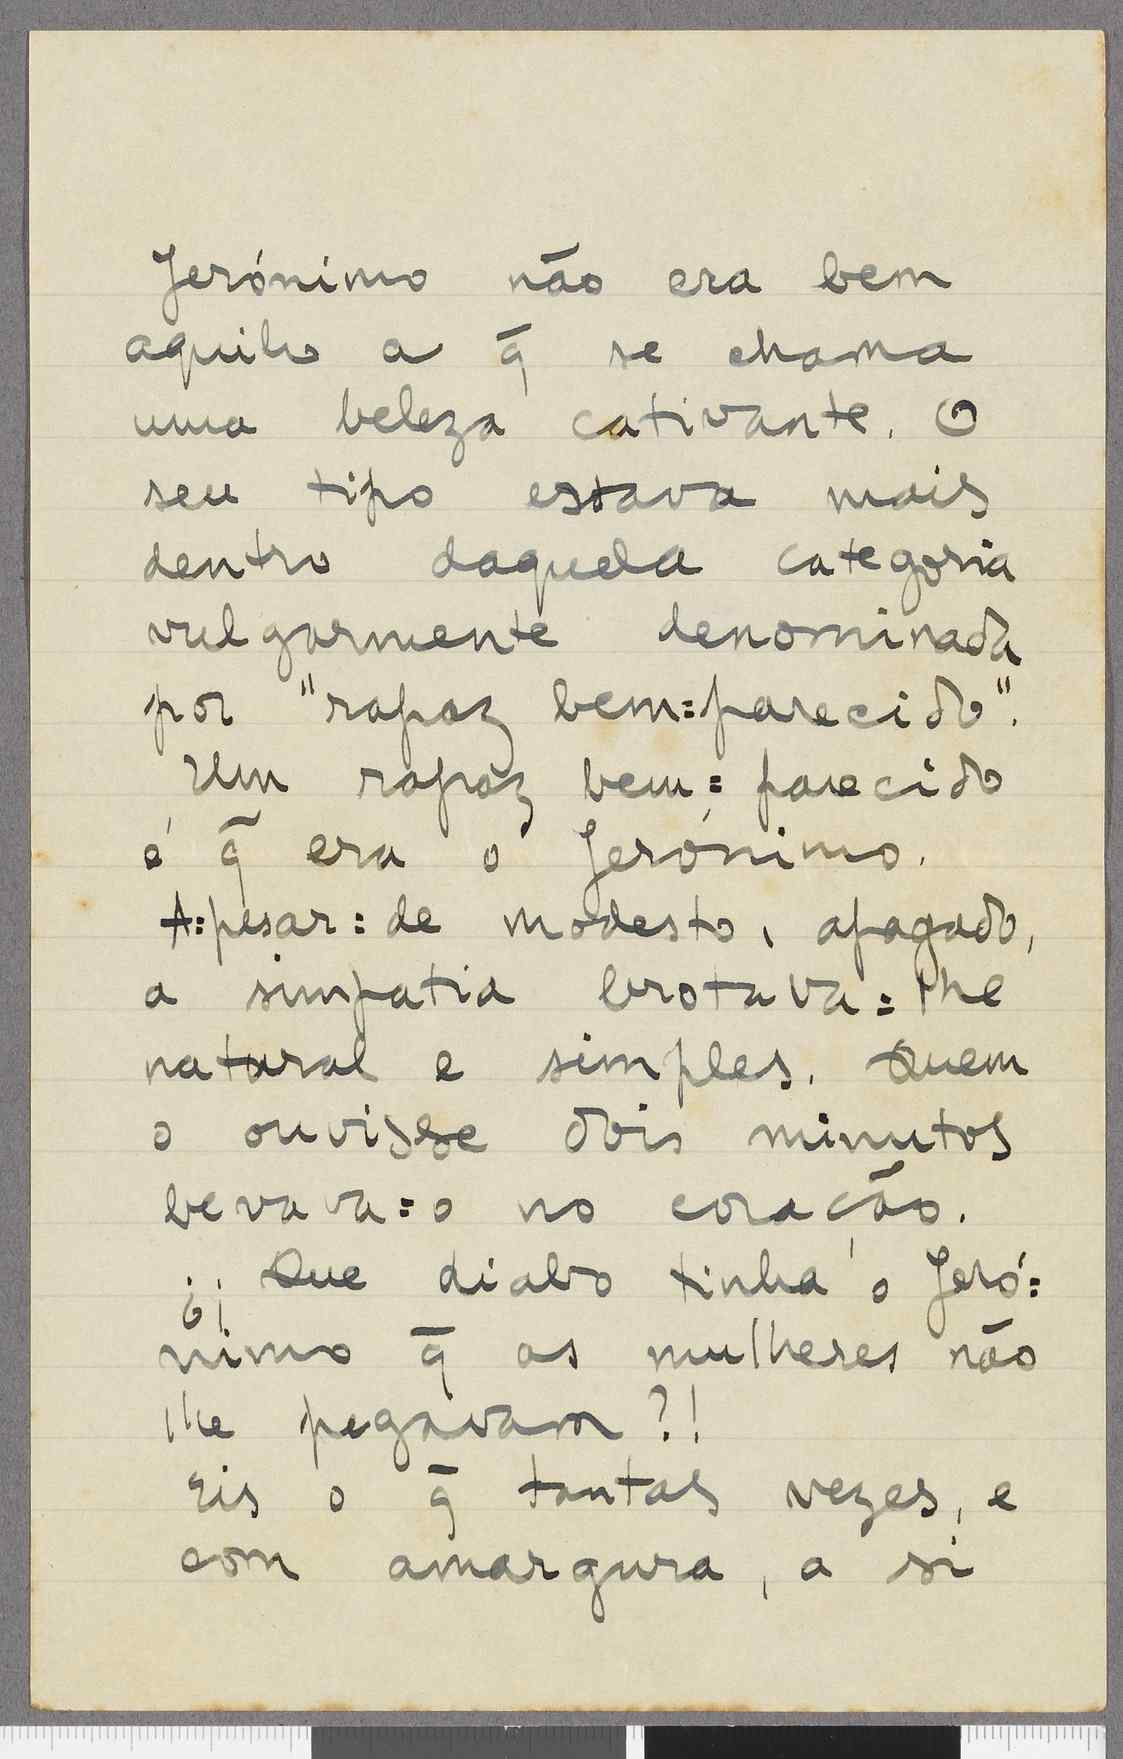 Jerónimo não era bem
aquilo a q̄ se chama
uma beleza cativante. O
seu tipo estava mais
dentro daquela categoria
vulgarmente denominada
por "rapaz bem=parecido".
Um rapaz bem=parecido
é q̄ era o Jerónimo.
A=pesar=de modesto, apagado,
a simpatia brotava=lhe
natural e simples. Quem
o ouvisse dois minutos
levava=o no coração.
¿¡ Que diabo tinha o Jeró=
nimo q̄ as mulheres não
lhe pegavam?!
Eis o q̄ tantas vezes, e
com amargura, a si